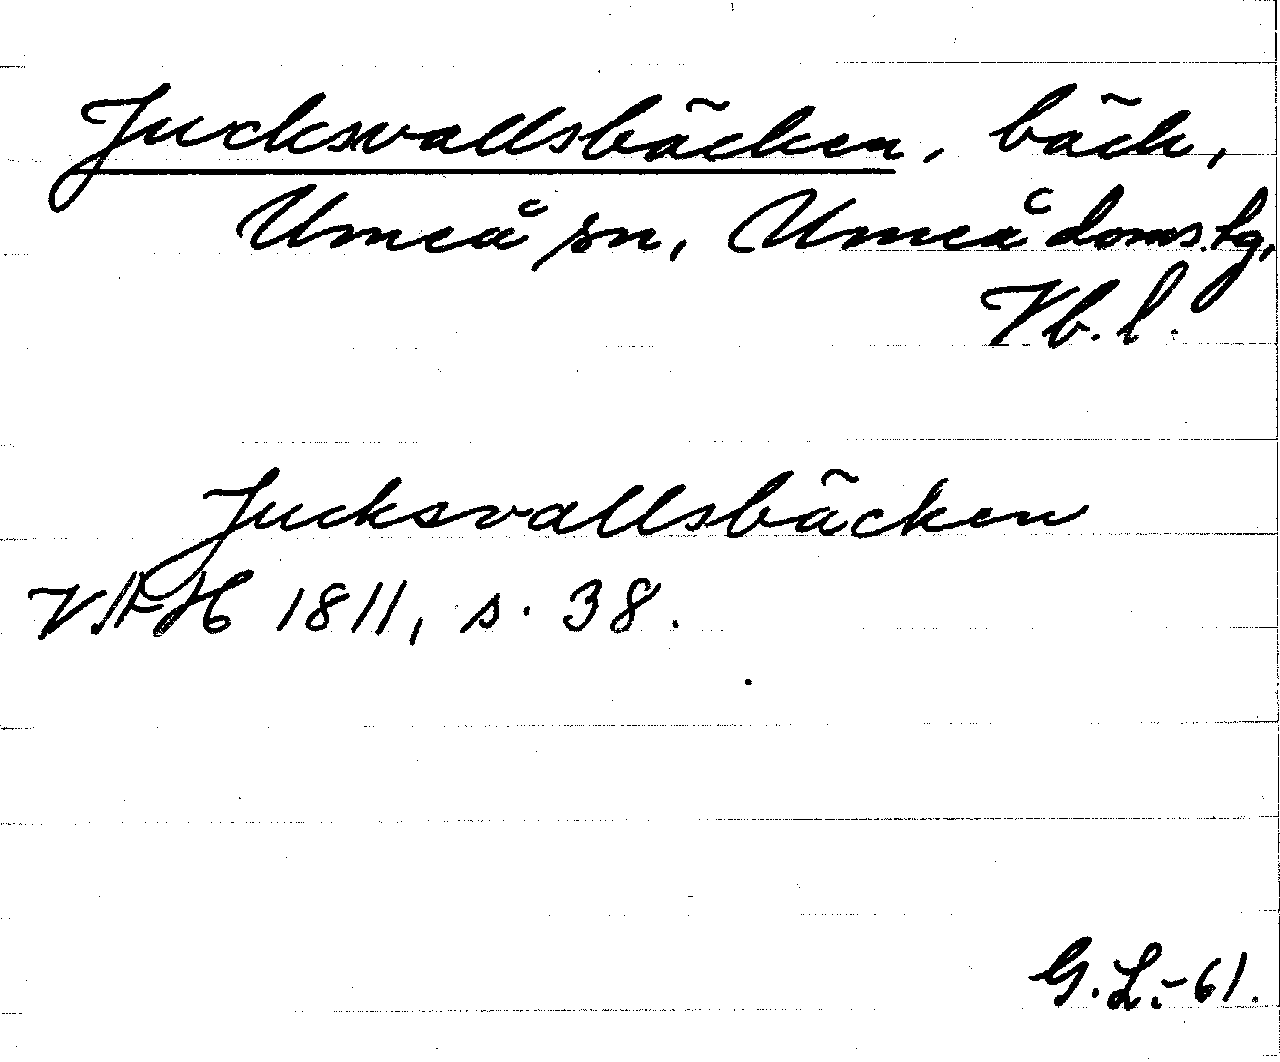 Jucksvallsbäcken, bäck,
Umeå sn, Umeå doms.tg,
Vb. l.
Jucksvallsbäcken
VAH 1811, s. 38.
G.L.-61.